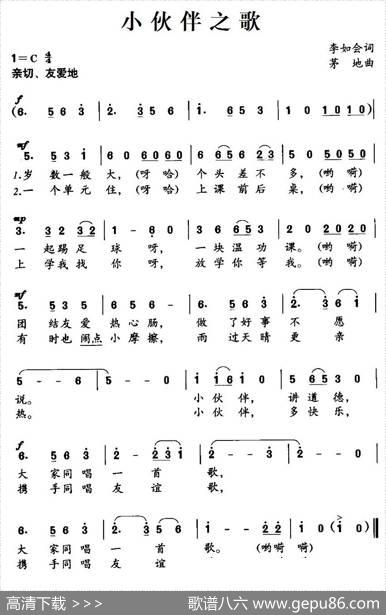 小伙伴之歌
1=C 4/4
李如会词
亲切、友爱地
茅 地曲
f
(6. 5 6 3 | 2. 3 5 6 | i. 6 5 3 | 1 0 1 0 1 0) |
mf
5. 5 3 1 | 6 0 6 0 6 0 | 6 5 6 2 3 | 5 0 5 0 5 0 |
1.岁 数一般 大,(呀 哈) 个 头 差 不 多,(哟 嗬)
2.一 个单元 住,(呀 哈) 上 课 前 后 桌,(哟 嗬)
mp
3. 3 2 3 2 | 1 - 6 0 | 3 6 6 5 3 | 2 0 2 0 2 0 |
一 起踢足 球 呀, 一 块 温 功 课。(哟 嗬)
上 学我找 你 呀, 放 学 你 等 我。(哟 嗬)
mf
团 结友爱 热 心 肠, 做 了好事 不 愿
有 时也闹点 小 摩 擦, 雨 过天晴 更 亲
5 - - 6 | 5 - - 0 | i i 6 i 0 | 5 6 5 3 0 |
说。 小 伙 伴, 讲 道 德,
热。 小 伙 伴, 多 快 乐,
f
大 家同唱 一 首 歌,
携 手同唱 友 谊 歌,
大 家同唱 一 首 歌。 (哟嗬 嗬)
携 手同唱 友 谊 歌。 (哟嗬 嗬)
高清下载 >>>
歌谱八六 www.gepu86.com